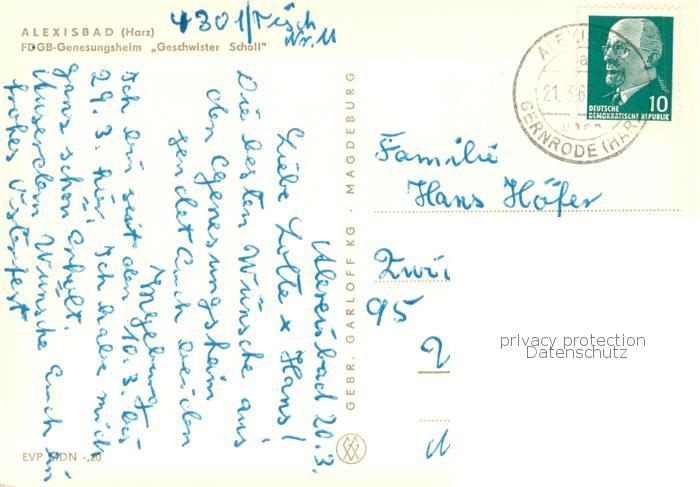 4301/
Nr. 11
ALEXISBAD (Harz)
FDGB-Genesungsheim „Geschwister Scholl"
Alexisbad 20.3.
Liebe Lotte x Hans!
Die besten Wünsche aus
den Genesungsheim
sendet Euch beiden
Ingeburg
Ich bin seit den 10.3. bis
29.3. hier. Ich habe mich
ganz schön erholt.
Ausserdem Wünsche Euch ein
frohes Osterfest
EVP MDN -,20
GEBR. GARLOFF KG · MAGDEBURG
21.3.67
GERNRODE (HARZ)
DEUTSCHE
DEMOKRATISCHE REPUBLIK
10
Familie
Hans Höfer
95
privacy protection
Datenschutz